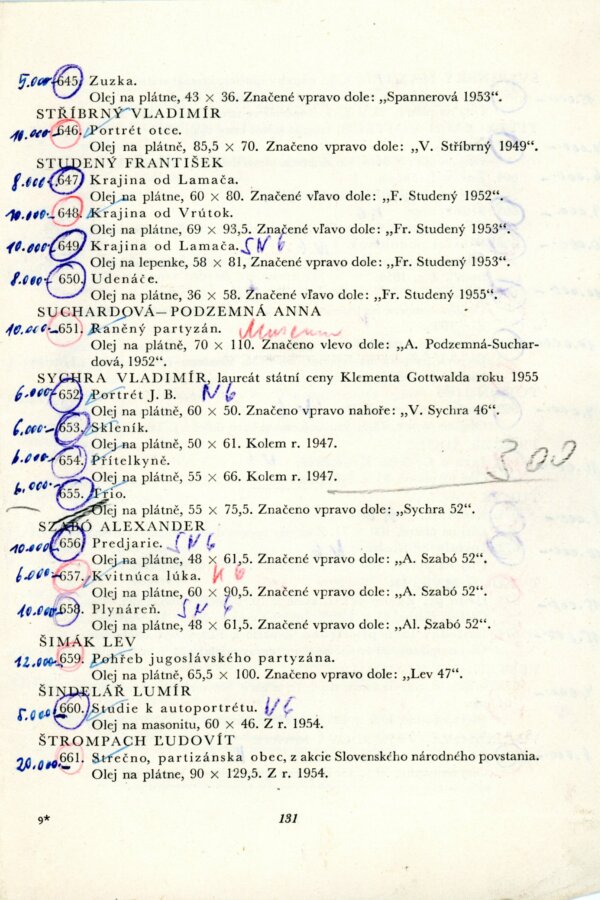 5.000- 645. Zuzka.
Olej na plátne, 43 × 36. Značené vpravo dole: „Spannerová 1953“.
STŘÍBRNÝ VLADIMÍR
10.000- 646. Portrét otce.
Olej na plátně, 85,5 × 70. Značeno vpravo dole: „V. Stříbrný 1949“.
STUDENÝ FRANTIŠEK
8.000- 647. Krajina od Lamača.
Olej na plátne, 60 × 80. Značené vľavo dole: „F. Studený 1952“.
10.000- 648. Krajina od Vrútok.
Olej na plátne, 69 × 93,5. Značené vľavo dole: „Fr. Studený 1953“.
10.000- 649. Krajina od Lamača. SN6
Olej na lepenke, 58 × 81, Značené vpravo dole: „Fr. Studený 1953“.
8.000- 650. Udenáče.
Olej na plátne, 36 × 58. Značené vľavo dole: „Fr. Studený 1955“.
SUCHARDOVÁ—PODZEMNÁ ANNA
10.000- 651. Raněný partyzán. Museum
Olej na plátně, 70 × 110. Značeno vlevo dole: „A. Podzemná-Suchar-
dová, 1952“.
SYCHRA VLADIMÍR, laureát státní ceny Klementa Gottwalda roku 1955
6.000- 652. Portrét J. B. N6
Olej na plátně, 60 × 50. Značeno vpravo nahoře: „V. Sychra 46“.
6.000- 653. Skleník.
Olej na plátně, 50 × 61. Kolem r. 1947.
6.000- 654. Přítelkyně.
Olej na plátně, 55 × 66. Kolem r. 1947.
300
6.000- 655. Trio.
Olej na plátně, 55 × 75,5. Značeno vpravo dole: „Sychra 52“.
SZABÓ ALEXANDER
10.000- 656. Predjarie. SN6
Olej na plátne, 48 × 61,5. Značené vpravo dole: „A. Szabó 52“.
6.000- 657. Kvitnúca lúka. N6
Olej na plátne, 60 × 90,5. Značené vpravo dole: „A. Szabó 52“.
10.000- 658. Plynáreň. SN6
Olej na plátne, 48 × 61,5. Značené vpravo dole: „Al. Szabó 52“.
ŠIMÁK LEV
12.000- 659. Pohřeb jugoslávského partyzána.
Olej na plátně, 65,5 × 100. Značeno vpravo dole: „Lev 47“.
ŠINDELÁŘ LUMÍR
8.000- 660. Studie k autoportrétu. N6
Olej na masonitu, 60 × 46. Z r. 1954.
ŠTROMPACH ĽUDOVÍT
20.000- 661. Strečno, partizánska obec, z akcie Slovenského národného povstania.
Olej na plátne, 90 × 129,5. Z r. 1954.
9* 131